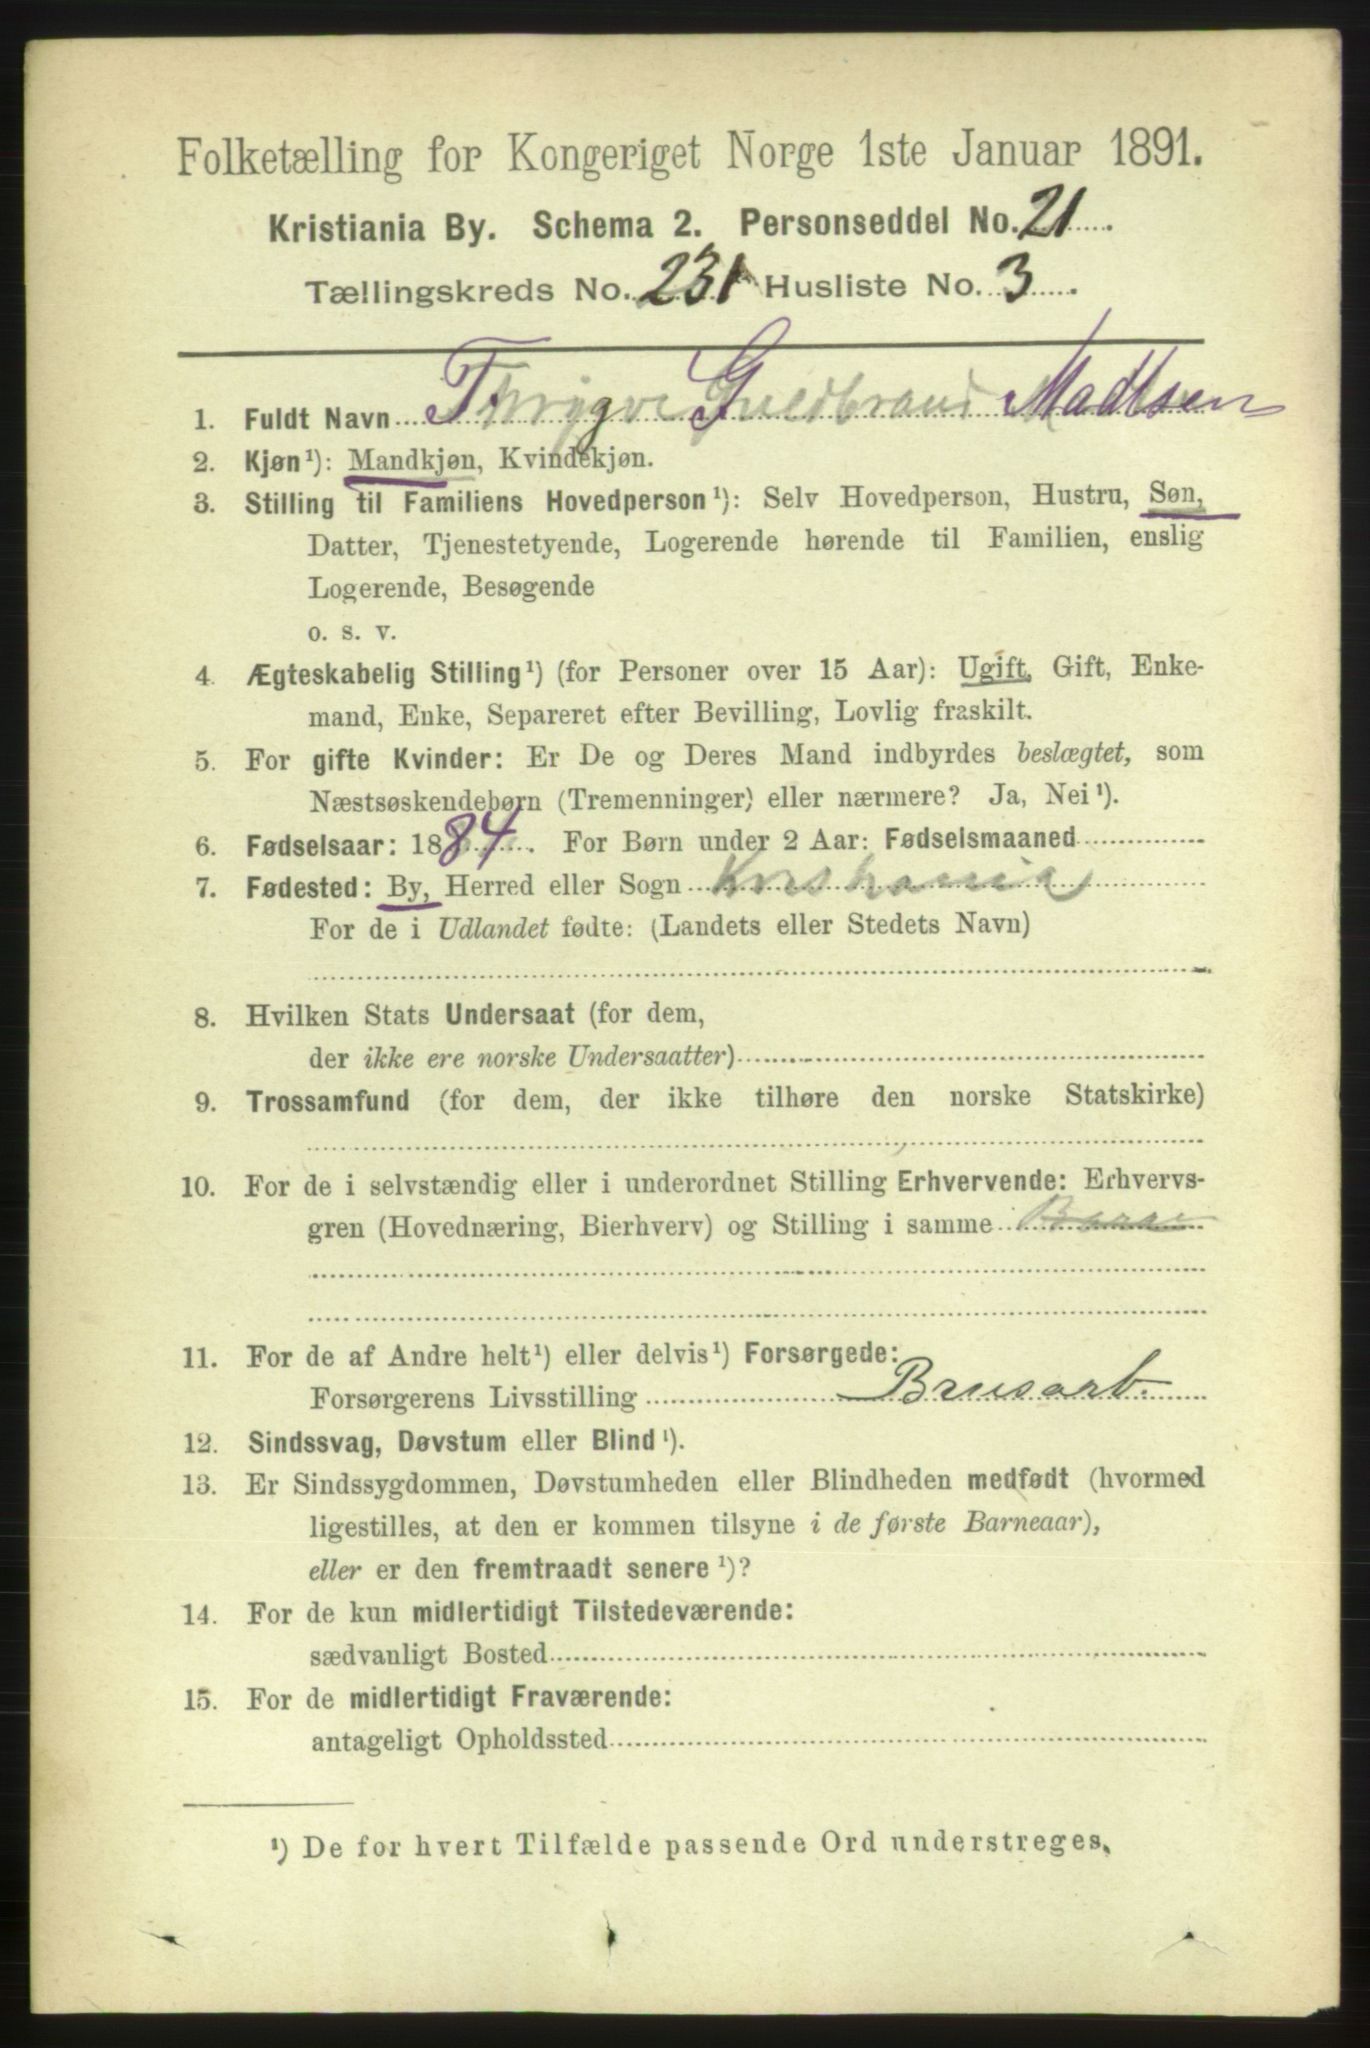 Folketælling for Kongeriget Norge 1ste Januar 1891.
Kristiania By. Schema 2. Personseddel No. 21
Tællingskreds No. 231 Husliste No. 3
1. Fuldt Navn Thrygve Guldbrand Madtsen
2. Kjøn¹): Mandkjøn, Kvindekjøn.
3. Stilling til Familiens Hovedperson¹): Selv Hovedperson, Hustru, Søn,
Datter, Tjenestetyende, Logerende hørende til Familien, enslig
Logerende, Besøgende
o. s. v.
4. Ægteskabelig Stilling¹) (for Personer over 15 Aar): Ugift, Gift, Enke-
mand, Enke, Separeret efter Bevilling, Lovlig fraskilt.
5. For gifte Kvinder: Er De og Deres Mand indbyrdes beslægtet, som
Næstsøskendebørn (Tremenninger) eller nærmere? Ja, Nei¹).
6. Fødselsaar: 1884. For Børn under 2 Aar: Fødselsmaaned
7. Fødested: By, Herred eller Sogn Kristiania
For de i Udlandet fødte: (Landets eller Stedets Navn)
8. Hvilken Stats Undersaat (for dem,
der ikke ere norske Undersaatter)
9. Trossamfund (for dem, der ikke tilhøre den norske Statskirke)
10. For de i selvstændig eller i underordnet Stilling Erhvervende: Erhvervs-
gren (Hovednæring, Bierhverv) og Stilling i samme
11. For de af Andre helt¹) eller delvis¹) Forsørgede:
Forsørgerens Livsstilling Brusarb.
12. Sindssvag, Døvstum eller Blind¹).
13. Er Sindssygdommen, Døvstumheden eller Blindheden medfødt (hvormed
ligestilles, at den er kommen tilsyne i de første Barneaar),
eller er den fremtraadt senere¹)?
14. For de kun midlertidigt Tilstedeværende:
sædvanligt Bosted
15. For de midlertidigt Fraværende:
antageligt Opholdssted
¹) De for hvert Tilfælde passende Ord understreges.